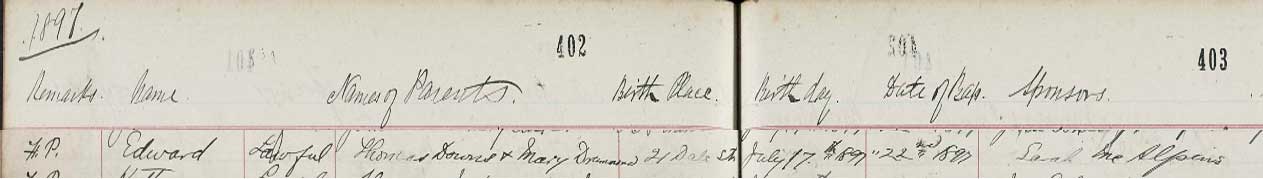 1897.
402
403
Remarks. Name. Names of Parents. Birth Place. Birth day. Date of Bap. Sponsors.
F.P. Edward Lawful Thomas Downs & Mary Drummond 21 Dale St. July 17th 1897 " 22nd 1897 Sarah Mc Alpine